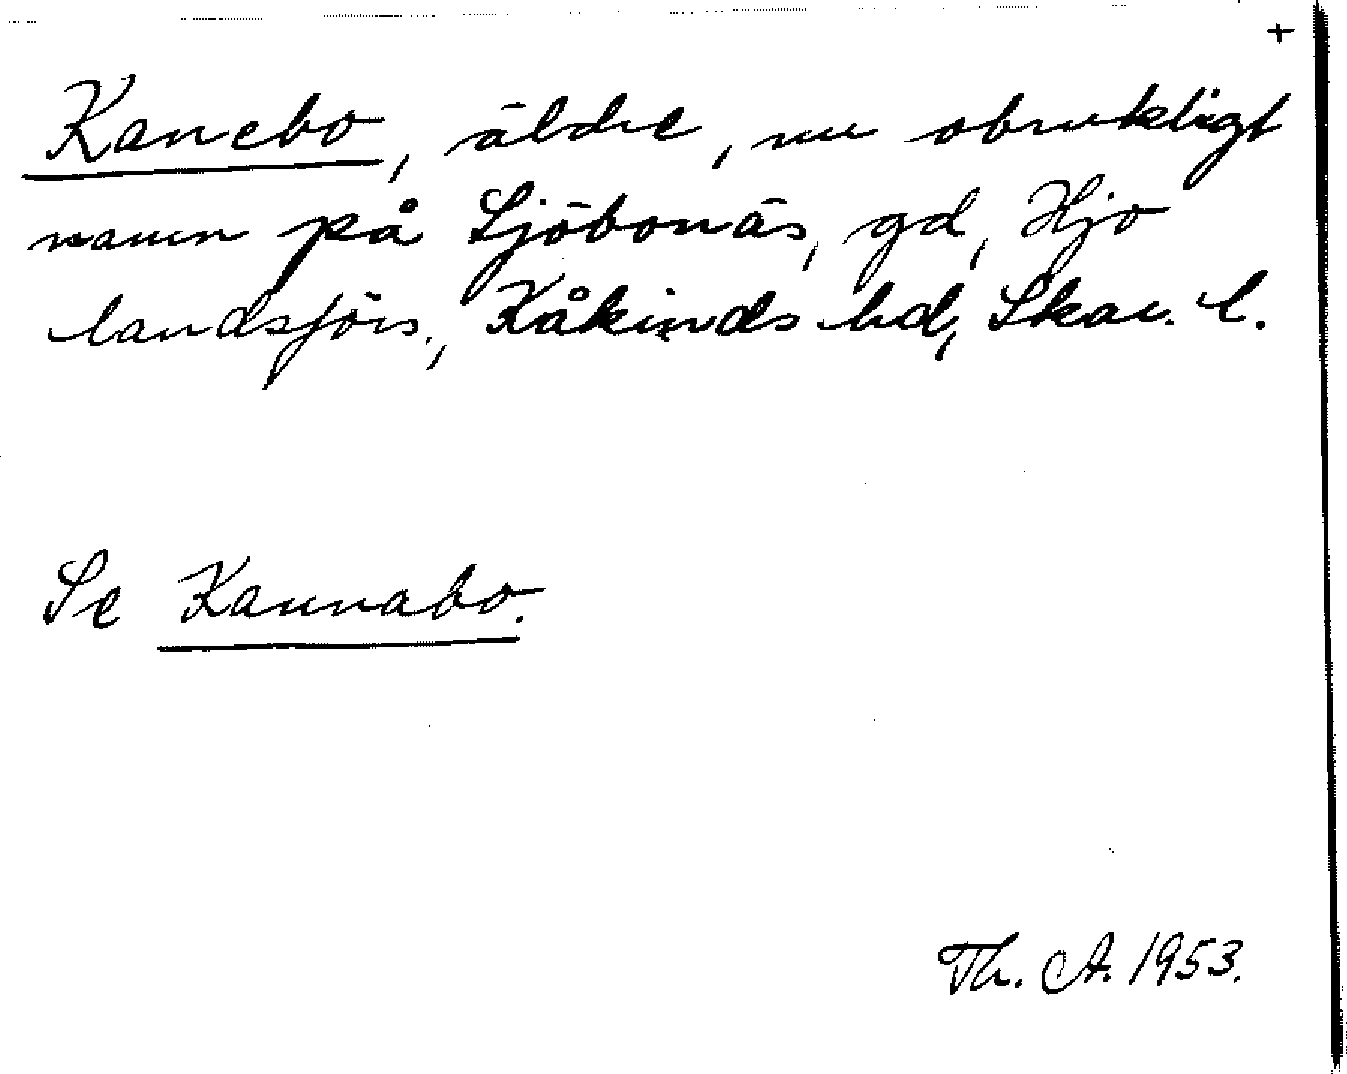 +
Kanebo, äldre, nu obrukligt
namn på Sjöbonäs, gd, Hjo
landsförs., Kåkinds hd, Skar. l.
Se Kannabo.
Th. A. 1953.